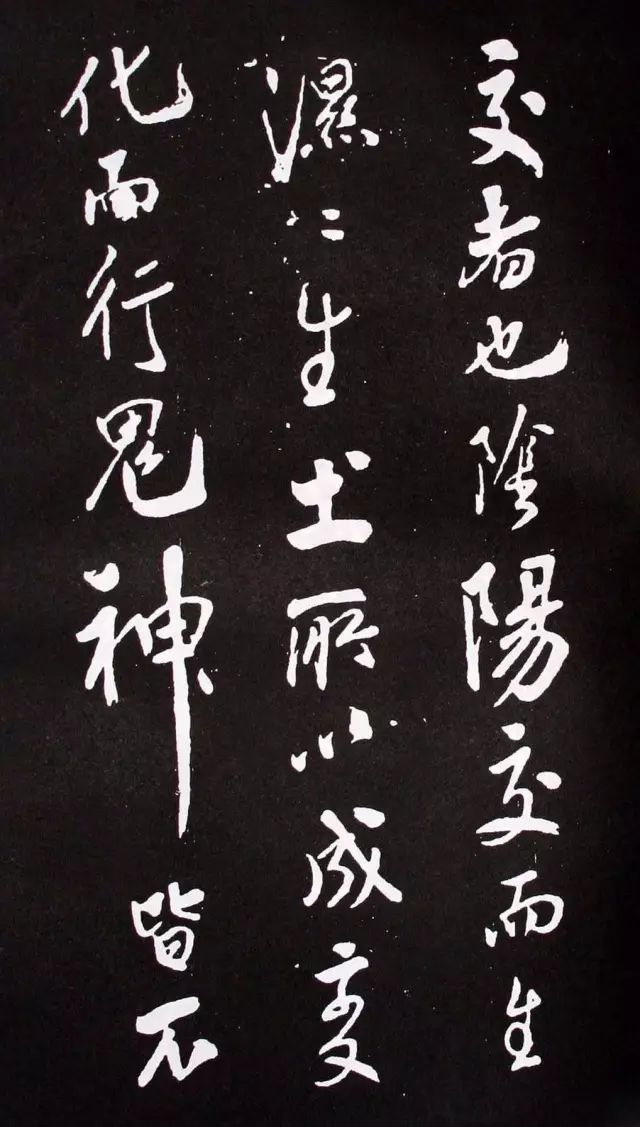 交者也陰陽交而生
濕〻生土所以成變
化而行鬼神皆不